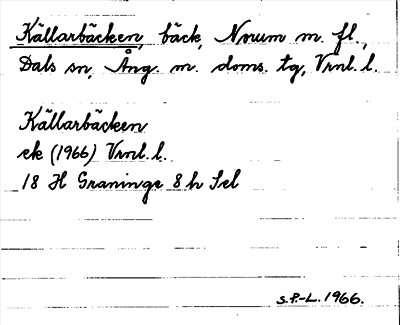 Källarbäcken, bäck, Norum m. fl.,
Dals sn, Ång. m. doms. tg, Vrnl. l.
Källarbäcken
ek (1966) Vrnl. l.
18 H Graninge 8 h Sel
S.P.-L. 1966.